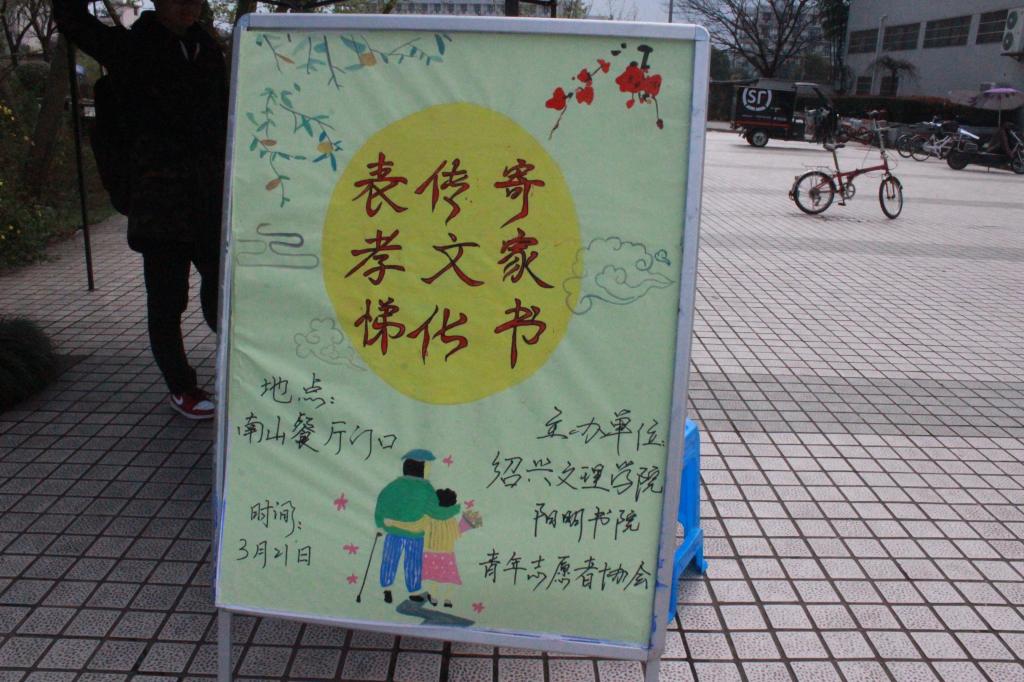 寄家书
传文化
表孝悌
地点:
南山餐厅门口
时间:
3月21日
主办单位
绍兴文理学院
阳明书院
青年志愿者协会
SF